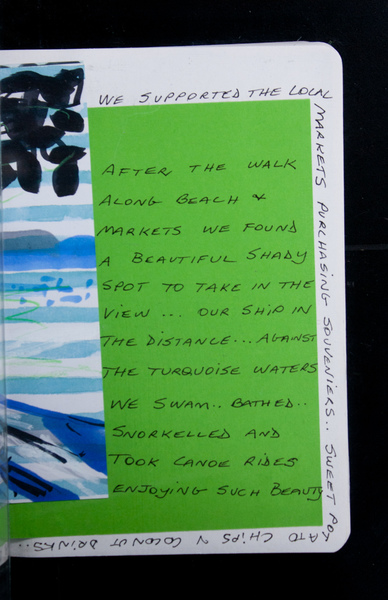 WE SUPPORTED THE LOCAL
MARKETS PURCHASING SOUVENIERS.. SWEET POT
ATO CHIPS N COCONUT DRINKS...
AFTER THE WALK
ALONG BEACH &
MARKETS WE FOUND
A BEAUTIFUL SHADY
SPOT TO TAKE IN THE
VIEW ... OUR SHIP IN
THE DISTANCE... AGAINST
THE TURQUOISE WATERS
WE SWAM.. BATHED..
SNORKELLED AND
TOOK CANOE RIDES
ENJOYING SUCH BEAUTY